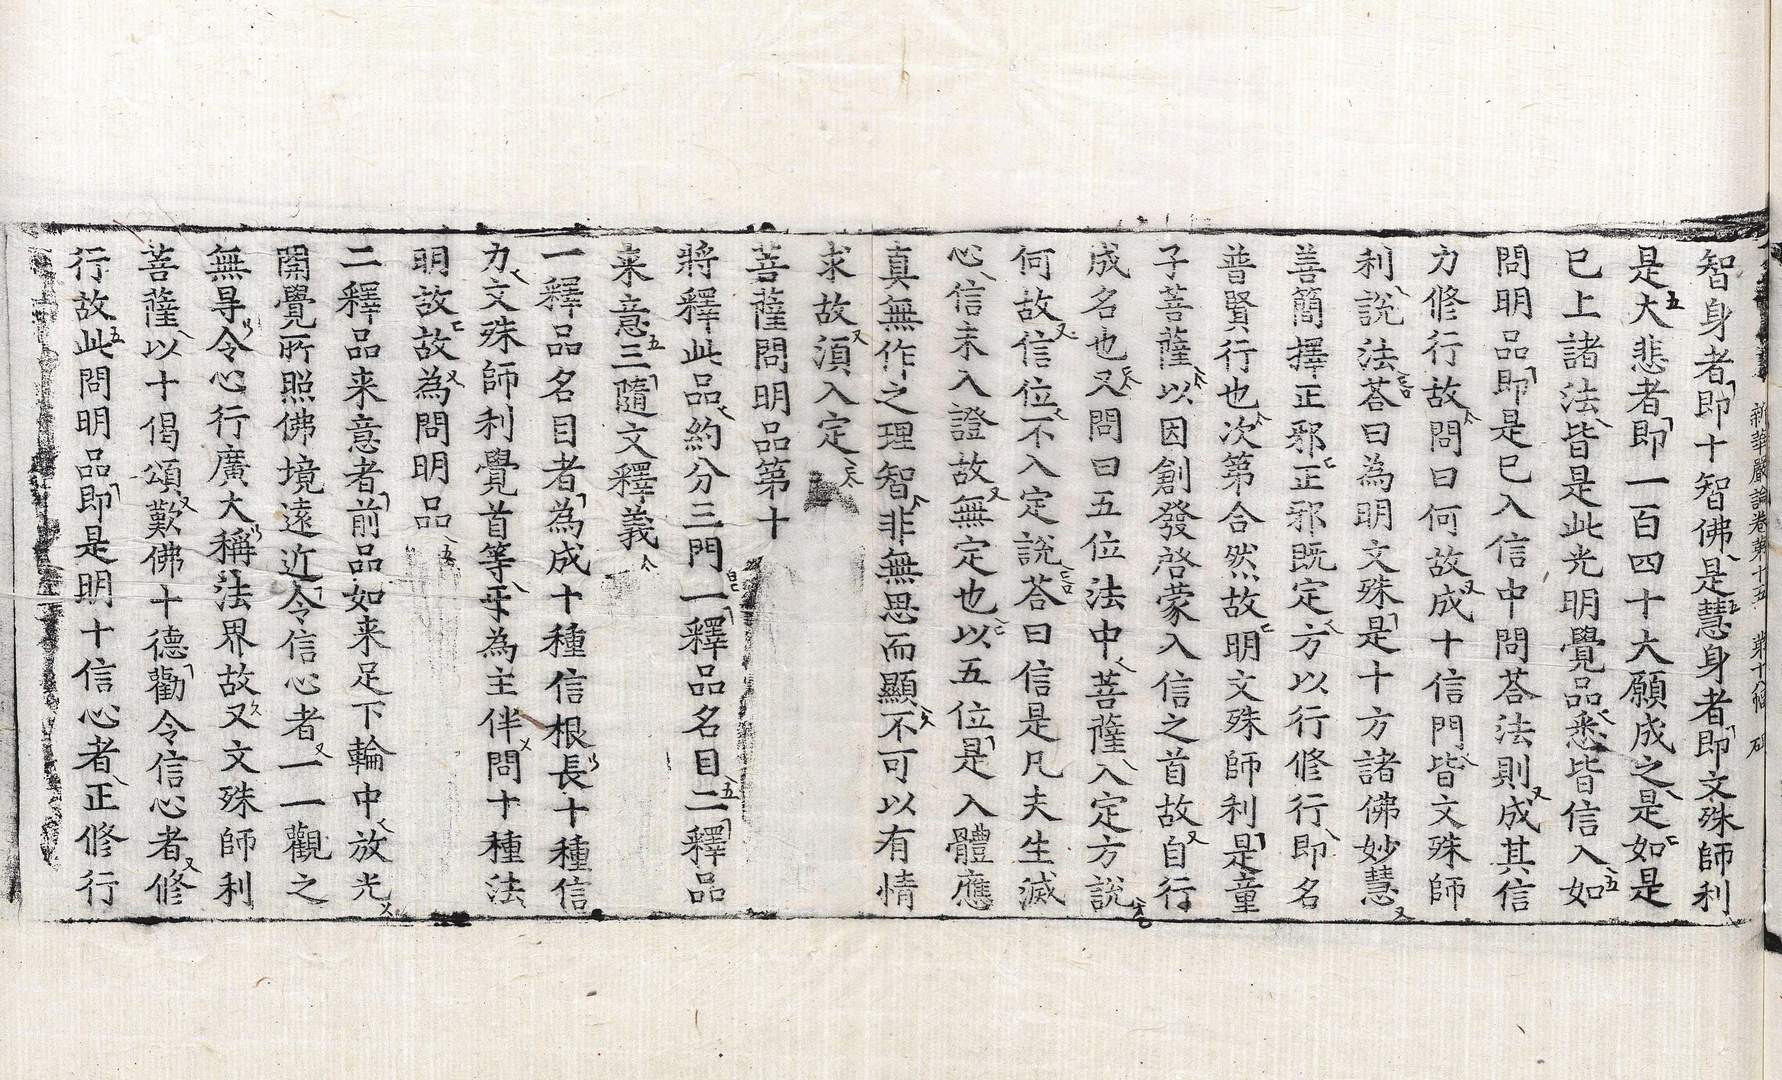 新華嚴論卷第十五 第十八幅 砥
智身者即十智佛是慧身者即文殊師利
是大悲者即一百四十大願成之是如是
已上諸法皆是此光明覺品悉皆信入如
問明品即是已入信中問荅法則成其信
力修行故問曰何故成十信門皆文殊師
利說法荅曰為明文殊是十方諸佛妙慧
善簡擇正邪正邪旣定方以行修行即名
普賢行也次第合然故明文殊師利是童
子菩薩以因創發啓蒙入信之首故自行
成名也又問曰五位法中菩薩入定方說
何故信位不入定說荅曰信是凡夫生滅
心信未入證故無定也以五位是入體應
真無作之理智非無思而顯不可以有情
求故須入定
菩薩問明品第十
將釋此品約分三門一釋品名目二釋品
来意三隨文釋義
一釋品名目者為成十種信根長十種信
力文殊師利覺首等乎為主伴問十種法
明故故為問明品
二釋品来意者前品如来足下輪中放光
開覺所照佛境遠近令信心者一一觀之
無㝵令心行廣大稱法界故又文殊師利
菩薩以十偈頌歎佛十德勸令信心者修
行故此問明品即是明十信心者正修行